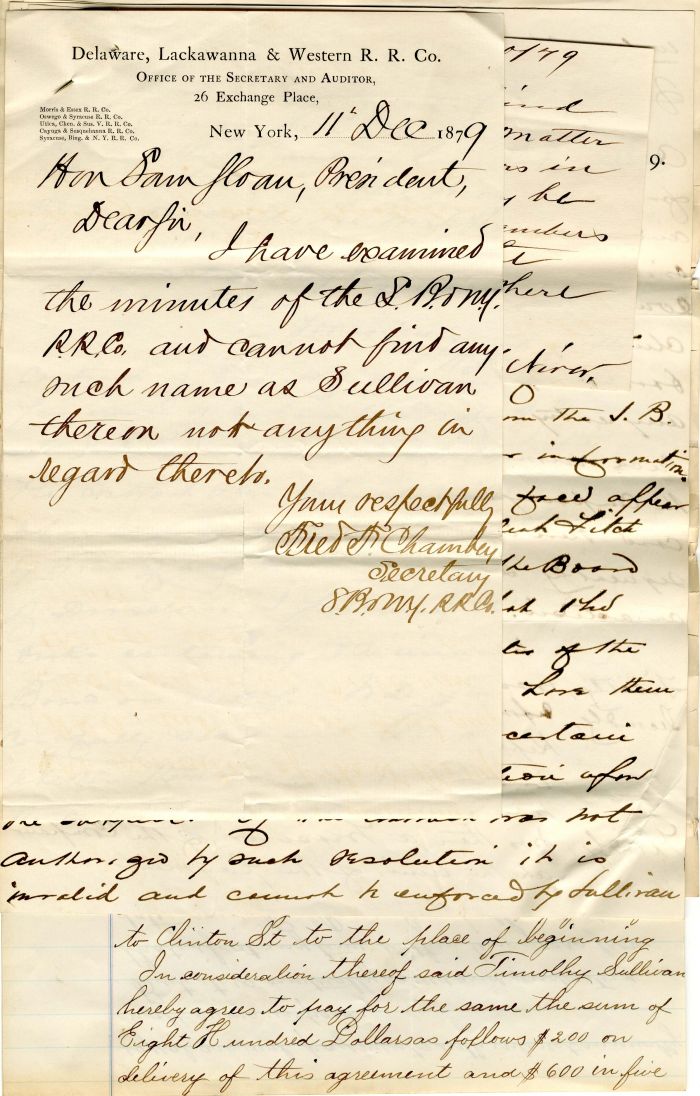 Delaware, Lackawanna & Western R. R. Co.
Office of the Secretary and Auditor,
26 Exchange Place,
Morris & Essex R. R. Co.
Oswego & Syracuse R. R. Co.
Utica, Chen. & Sus. V. R. R. Co.
Cayuga & Susquehanna R. R. Co.
Syracuse, Bing. & N. Y. R. R. Co.
New York, 11' Dec 1879
Hon Sam Sloan, President,
Dear Sir,
I have examined
the minutes of the S. B. & N.Y.
R.R. Co. and cannot find any
such name as Sullivan
thereon not anything in
regard thereto.
Yours respectfully
Fred F. Chambers
Secretary
S. B. & N.Y. R.R. Co.
79
9.
matter
in
be
the S. B.
information
face appear
Fitch
the Board
of the
have them
certain
upon
was not
authorized by such resolution it is
invalid and cannot be enforced by Sullivan
to Clinton St to the place of beginning
In consideration thereof said Timothy Sullivan
hereby agrees to pay for the same the sum of
Eight Hundred Dollars as follows $200 on
delivery of this agreement and $600 in five